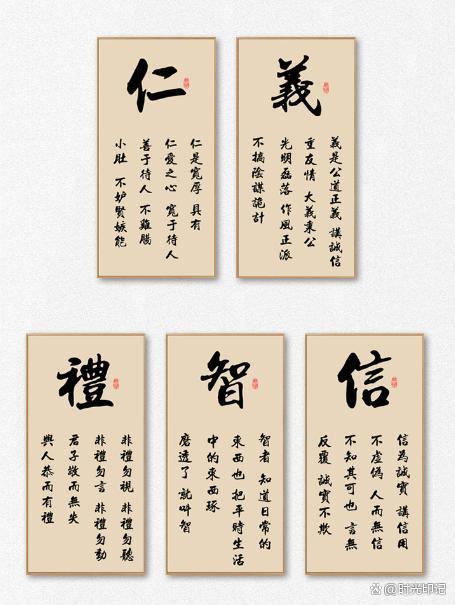 仁
仁是寬厚 具有
仁愛之心 寬于待人
善于待人 不雞腸
小肚 不妒賢嫉能
義
義是公道正義 講誠信
重友情 大義秉公
光明磊落 作風正派
不搞陰謀詭計
禮
非禮勿視 非禮勿聽
非禮勿言 非禮勿動
君子敬而無失
與人恭而有禮
智
智者 知道日常的
東西也 把平時生活
中的東西琢
磨透了 就叫智
信
信為誠實 講信用
不虛偽 人而無信
不知其可也 言無
反覆 誠實不欺
@时光印记